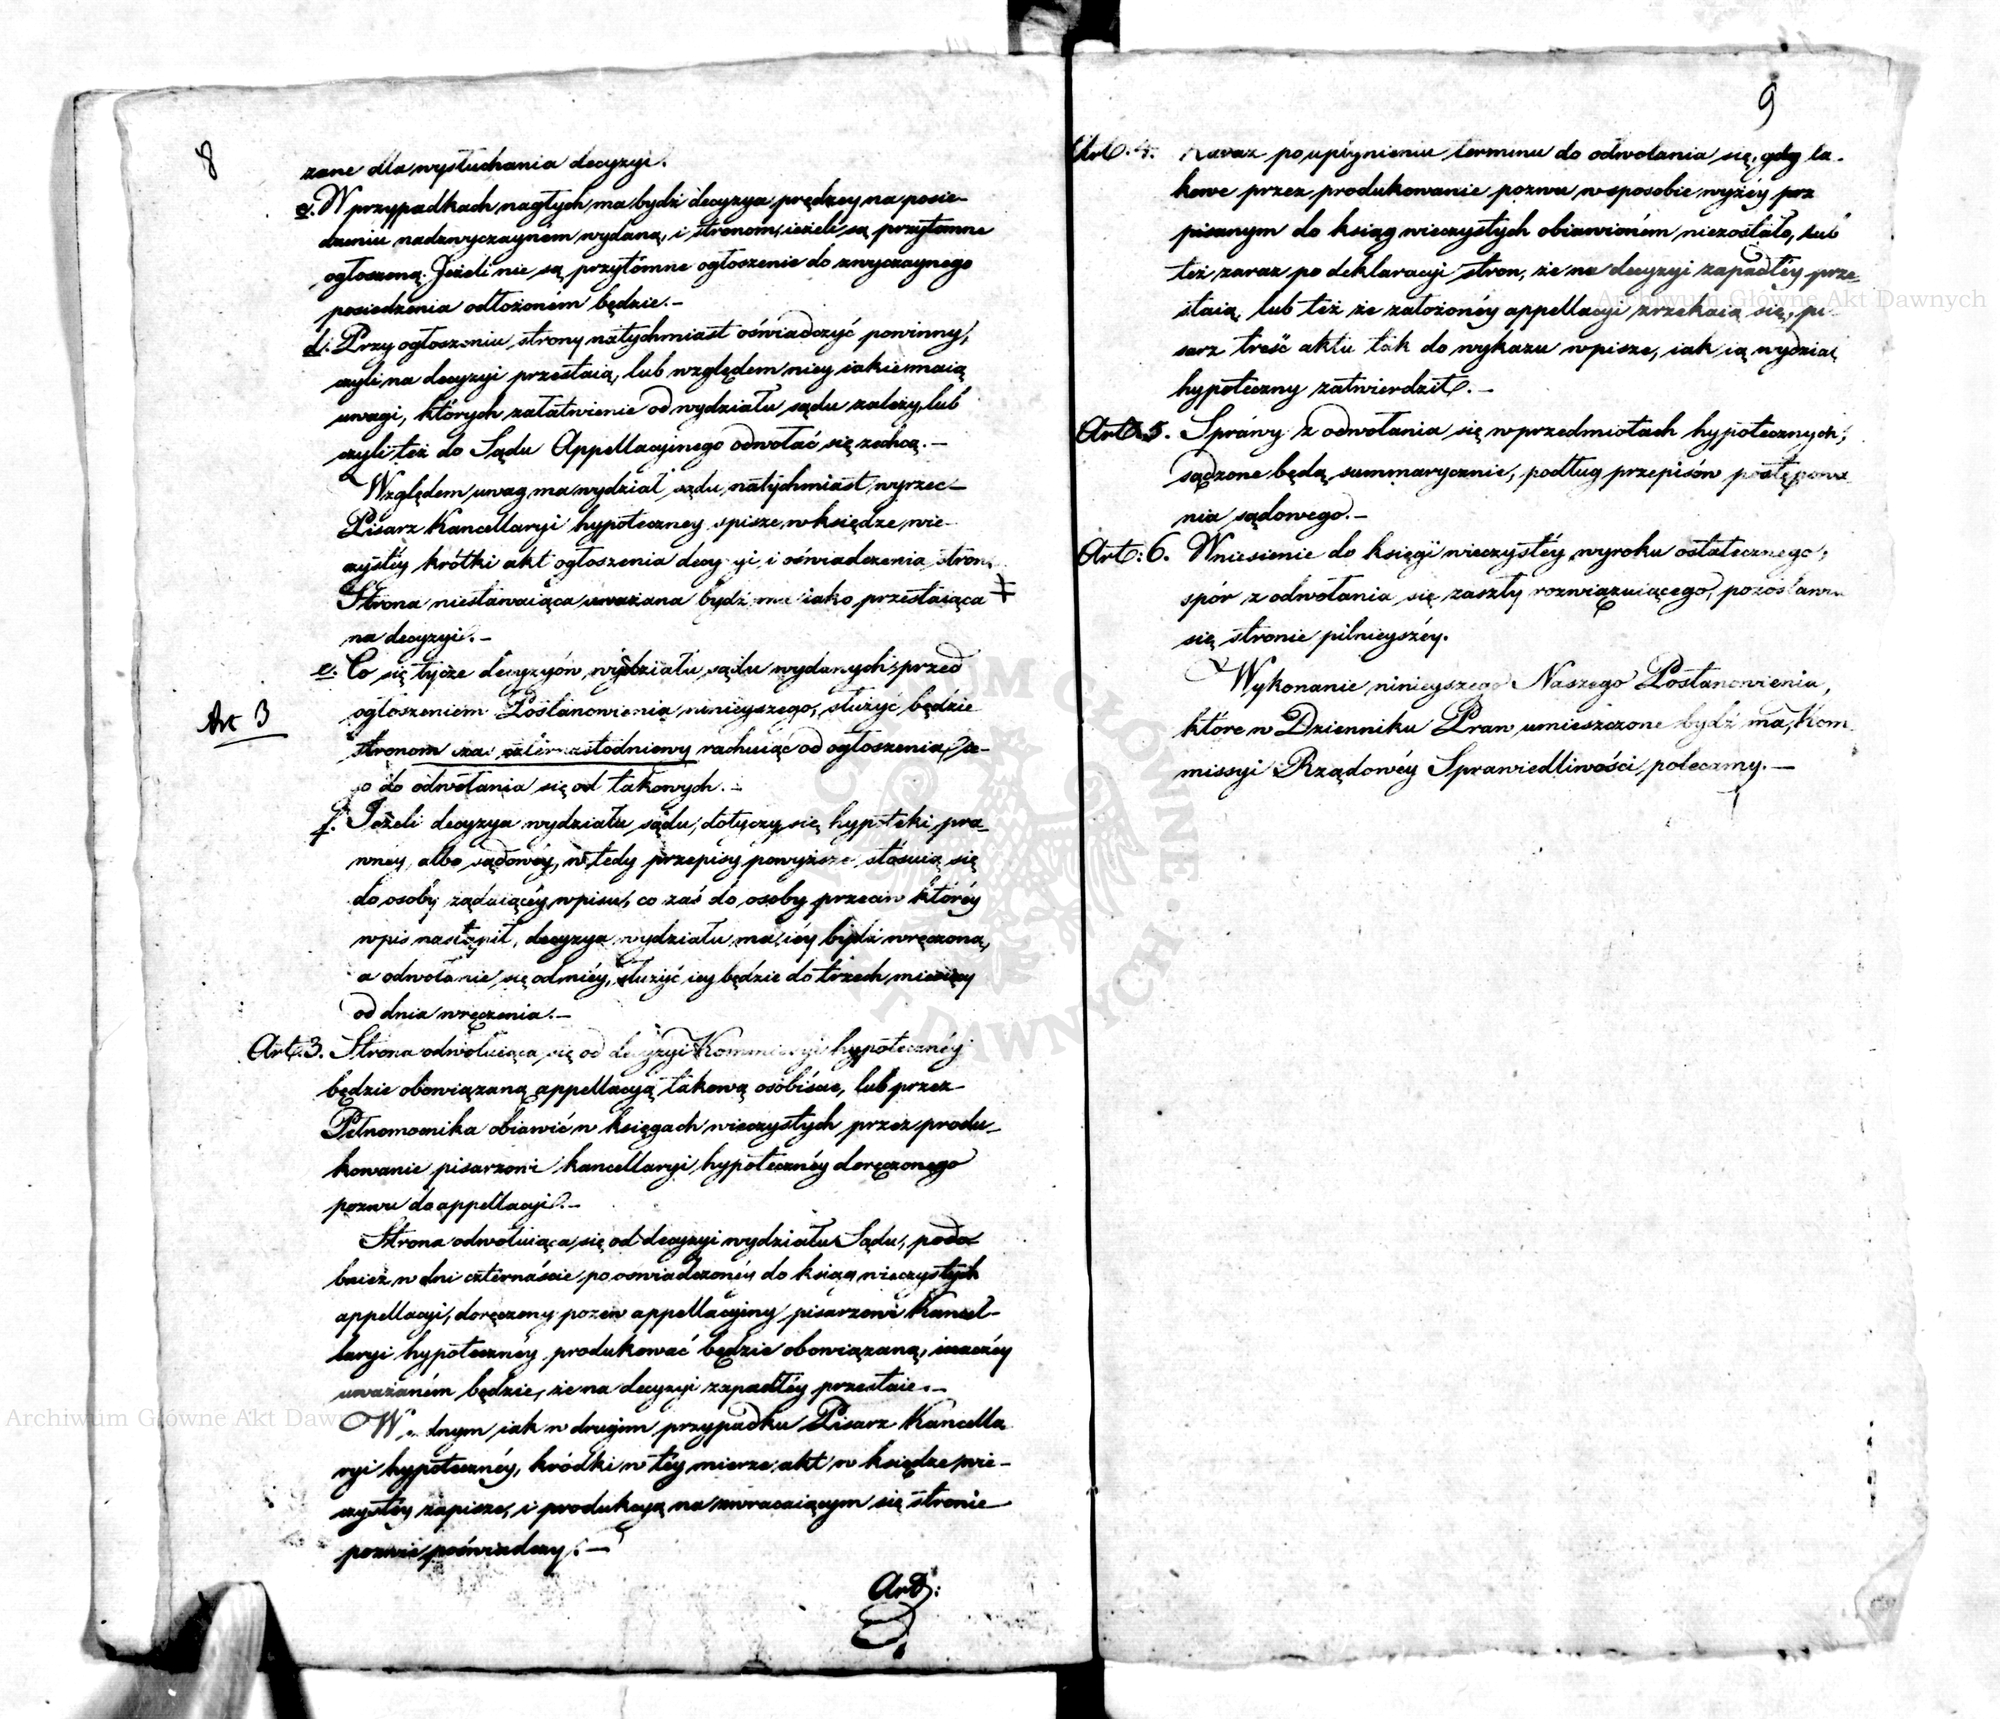 8
zane dla wysłuchania decyzyi.
c. W przypadkach nagłych, ma bydź decyzya prędzey na posie-
dzeniu nadzwyczaynem wydaną, i stronom, ieżeli są przytomne
ogłoszoną. Jeżeli nie są przytomne ogłoszenie do zwyczaynego
posiedzenia odłożoném będzie. -
d. Przy ogłoszeniu strony natychmiast oświadczyć powinny,
czyli na decyzyi przestaią, lub względem niey iakie maią
uwagi, których załatwienie od wydziału sądu zależy, lub
czyli też do Sądu Appellacyinego odwołać się zechcą. -
Względem uwag ma wydział sądu natychmiast wyrzec -
Pisarz Kancellaryi hypoteczney spisze w księdze wie-
czystey krótki akt ogłoszenia decyzyi, i oświadczenia stron.
Strona niestawaiąca uważana bydź ma iako przestaiąca ǂ
na decyzyi. -
e. Co się tycze decyzyów wydziału sądu wydanych, przed
ogłoszeniem Postanowienia ninieyszego, służyć będzie
Art 3
stronom czas czternastodniowy rachuiąc od ogłoszenia, te-
go do odwołania się od takowych. -
f. Jeżeli decyzya wydziału sądu, dotyczy się hypoteki pra-
wney albo sądowéy, w tedy przepisy powyższe stósuią się
do osoby żądaiącéy wpisu, co zaś do osoby przeciw któréy
wpis nastąpił, decyzya wydziału ma iéy bydź wręczona,
a odwołanie się od niéy, służyć iey będzie do trzech miesięcy
od dnia wręczenia. -
Art. 3. Strona odwołuiąca się od decyzyi Kommissyi hypotecznéy
będzie obowiązaną appellacyą takową osobiście, lub przez
Pełnomocnika obiawić w księgach wieczystych przez produ-
kowanie pisarzowi kancellaryi hypotecznéy doręczonego
pozwu do appellacyi. -
Strona odwołuiąca się od decyzyi wydziału Sądu, podo
bnież w dni czternaście po oswiadczonéy do ksiąg wieczystych
appellacyi, doręczony pozew appellacyiny pisarzowi Kancel-
laryi hypotecznéy produkować będzie obowiązaną, inaczéy
uważaném będzie, że na decyzyi zapadłéy przestaie. -
W iednym iak w drugim przypadku Pisarz Kancella
ryi hypotecznéy, kródki w téy mierze akt w księdze wie-
czystéy zapisze, i produkcyą na zwracaiącym się stronie
pozwie poświadczy. -
Art:
9
Art. 4. Zaraz po upłynieniu terminu do odwołania się, gdy ta-
kowe przez produkowanie pozwu w sposobie wyżéy prz
pisanym do ksiąg wieczystych obiawioném niezostało, lub
też zaraz po deklaracyi stron, że na decyzyi zapadłéy prze-
staią, lub też że założonéy appellacyi zrzekaią się, pi-
sarz treść aktu tak do wykazu wpisze, iak ią wydział
hypoteczny zatwierdził. -
Art. 5. Sprawy z odwołania się w przedmiotach hypotecznych,
sądzone będą summarycznie, podług przepisów postępowa
nia sądowego. -
Art: 6. Wniesienie do księgi wieczystéy wyroku ostatecznego,
spór z odwołania się zaszły rozwiązuiącego, pozostawia
się stronie pilnieyszéy.
Wykonanie ninieyszego Naszego Postanowienia,
które w Dzienniku Praw umieszczone bydź ma, Kom
missyi Rządowéy Sprawiedliwości, polecamy. -
Archiwum Główne Akt Dawnych
Archiwum Główne Akt Dawnych